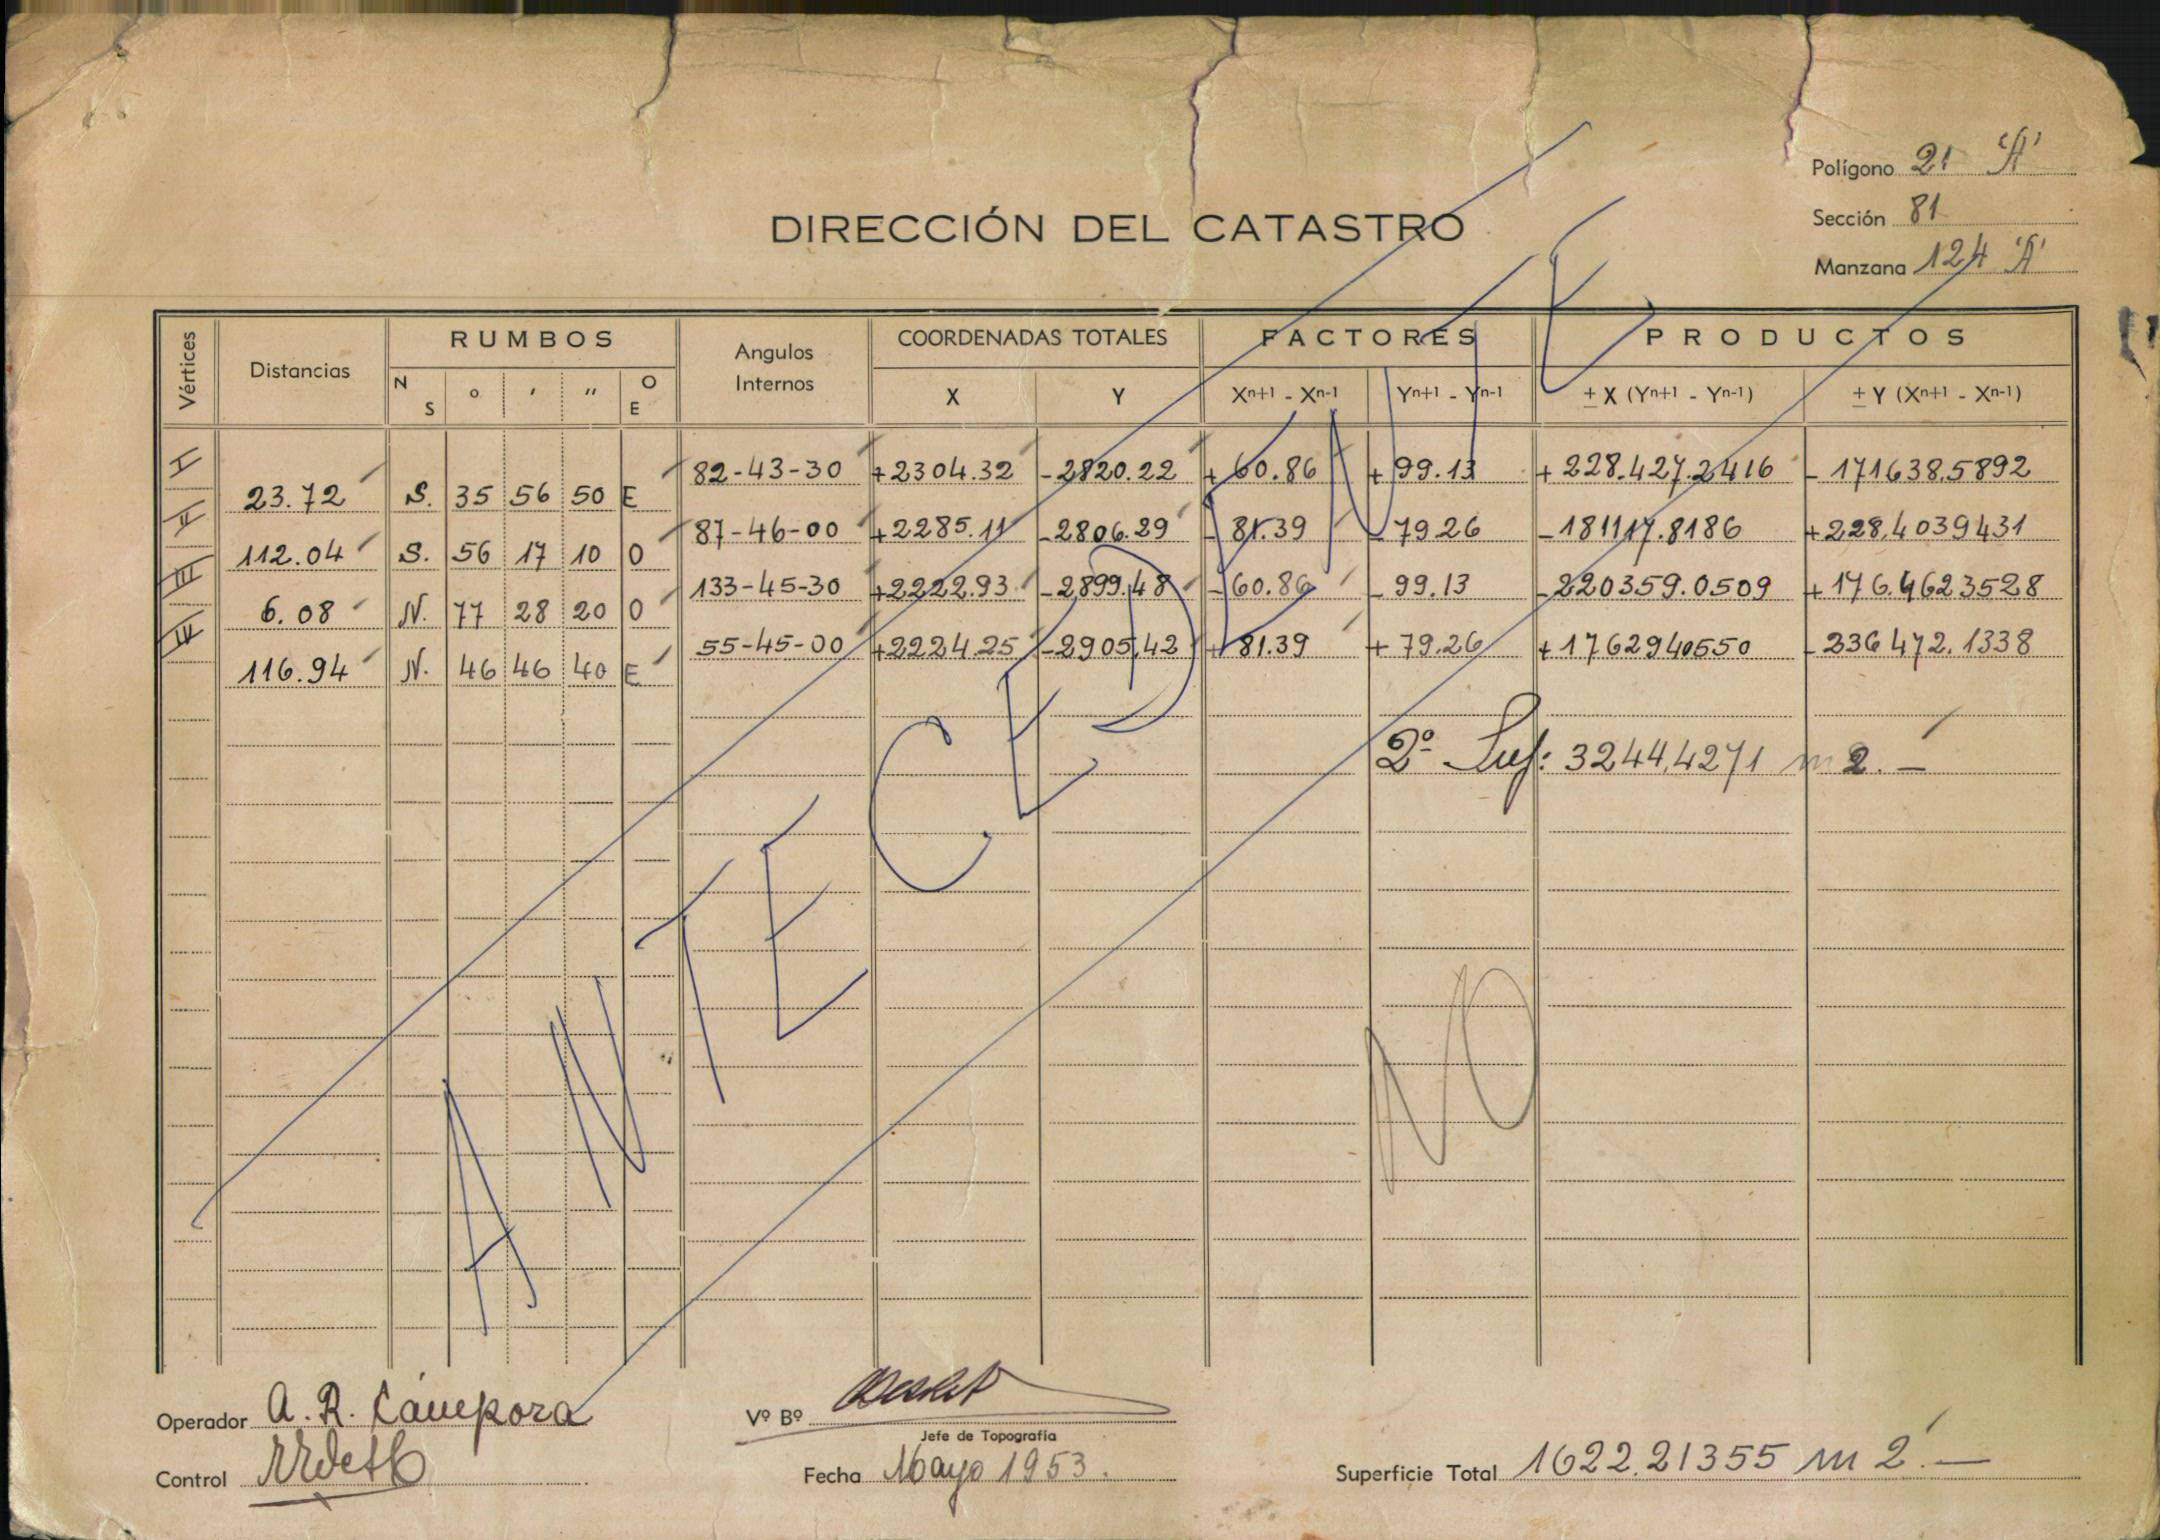 Polígono 21 'A'
Sección 81
Manzana 124 'A'
DIRECCIÓN DEL CATASTRO
Vértices Distancias RUMBOS Angulos Internos COORDENADAS TOTALES FACTORES PRODUCTOS
N S ° ' " O E X Y Xn+1 - Xn-1 Yn+1 - Yn-1 ± X (Yn+1 - Yn-1) ± Y (Xn+1 - Xn-1)
I 82-43-30 +2304.32 -2820.22 + 60.86 + 99.13 + 228.427.2416 - 171638.5892
23.72 S. 35 56 50 E
II 87-46-00 +2285.11 -2806.29 - 81.39 - 79.26 -181117.8186 +228.4039431
112.04 S. 56 17 10 O
III 133-45-30 +2222.93 -2899.48 - 60.86 - 99.13 -220359.0509 +176.4623528
6.08 N. 77 28 20 O
IV 55-45-00 +2224.25 -2905.42 + 81.39 + 79.26 +1762940550 -236472.1338
116.94 N. 46 46 40 E
2º Suf: 3244,4271 m2.-
ANTECEDENTE
NO
Operador A. R. Cámpora
Vº Bº
Jefe de Topografía
Control
Fecha Mayo 1953.
Superficie Total 1622.21355 m2.-